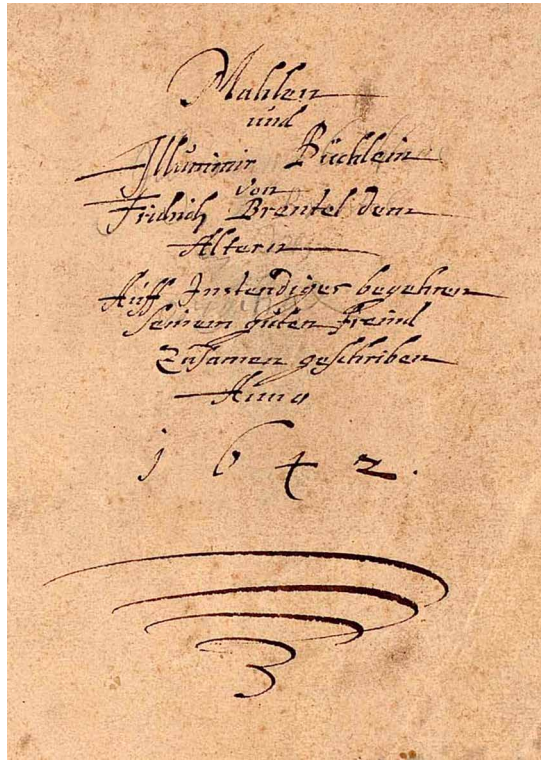 Mahlen
und
Illuminir Büchlein
von
Fridrich Brentel dem
Altern
Auff Instendiges begehren
seinem guten freind
Zusamen geschriben
Anno
1642.